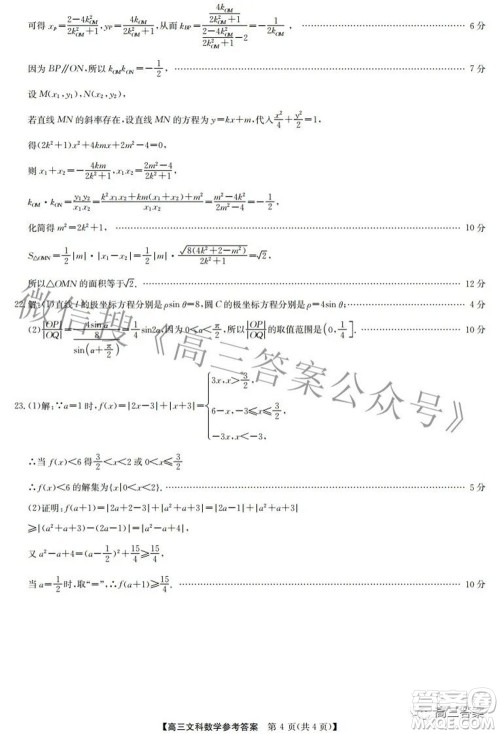 可得 x_P=(2-4k²_OM)/(2k²_OM+1), y_P=4k_OM/(2k²_OM+1), 从而 k_BP=(4k_OM/(2k²_OM+1))/((2-4k²_OM)/(2k²_OM+1)-2)=-1/(2k_OM). 6 分
因为 BP∥ON,所以 k_OM k_ON=-1/2. 7 分
设 M(x₁,y₁),N(x₂,y₂).
若直线 MN 的斜率存在,设 MN 的方程为 y=kx+m,代入 x²/4+y²/2=1,
得(2k²+1)x²+4kmx+2m²-4=0,
则 x₁+x₂=-4km/(2k²+1), x₁x₂=(2m²-4)/(2k²+1).
k_OM·k_ON=y₁y₂/(x₁x₂)=(k²x₁x₂+km(x₁+x₂)+m²)/(x₁x₂)=(m²-4k²)/(2m²-4)=-1/2,
化简得 m²=2k²+1, 10 分
S△OMN=1/2|m|·|x₁-x₂|=1/2|m|·√(8(4k²+2-m²))/(2k²+1)=√2,
所以△OMN 的面积等于√2. 12 分
22.解:(1)直线 l 的极坐标方程分别是 ρsin θ=8,圆 C 的极坐标方程分别是 ρ=4sin θ; 4 分
(2)|OP|/|OQ|=4sin α/(8/sin(α+π/2))=1/4 sin2α, 因为 0<α<π/2, 所以|OP|/|OQ|的取值范围是(0,1/4]. 10 分
23.(1)解:∵a=1 时,f(x)=|2x-3|+|x+3|={3x,x>3/2, 6-x,-3≤x≤3/2, -3x,x<-3.
∴当 f(x)<6 得 3/2<x<2 或 0<x≤3/2
∴f(x)<6 的解集为{x|0<x<2}. 5 分
(2)证明:f(a+1)=|2a+2-3|+|a²+a+3|=|2a-1|+|a²+a+3|
≥|(a²+a+3)-(2a-1)|=|a²-a+4|.
又 a²-a+4=(a-1/2)²+15/4≥15/4,
当 a=1/2时,取“=”,∴f(a+1)≥15/4. 10 分
微信搜《高三答案公众号》
【高三文科数学参考答案 第 4 页(共 4 页)】
高三答案